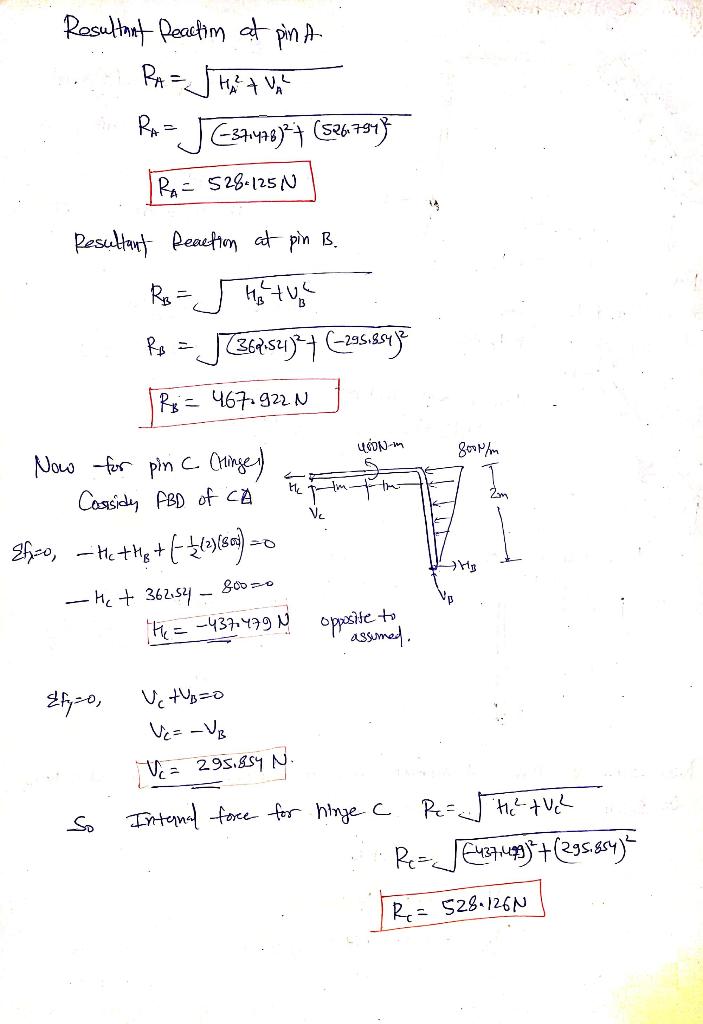 Resultant Reaction at pin A
R_A = √(H_A² + V_A²)
R_A = √((-37.478)² + (526.794)²)
R_A = 528.125 N
Resultant Reaction at pin B.
R_B = √(H_B² + V_B²)
R_B = √((362.521)² + (-295.854)²)
R_B = 467.922 N
Now for pin C (Hinge)
400N-m
800N/m
H_C
1m
1m
2m
V_C
FBD of
H_B
V_B
Σfx=0, -H_C + H_B + (-½(2)(800)) = 0
-H_C + 362.521 - 800 = 0
H_C = -437.479 N opposite to
assumed.
Σfy=0, V_C + V_B = 0
V_C = -V_B
V_C = 295.854 N.
So Internal force for hinge C R_C = √(H_C² + V_C²)
R_C = √((-437.479)² + (295.854)²)
R_C = 528.126N